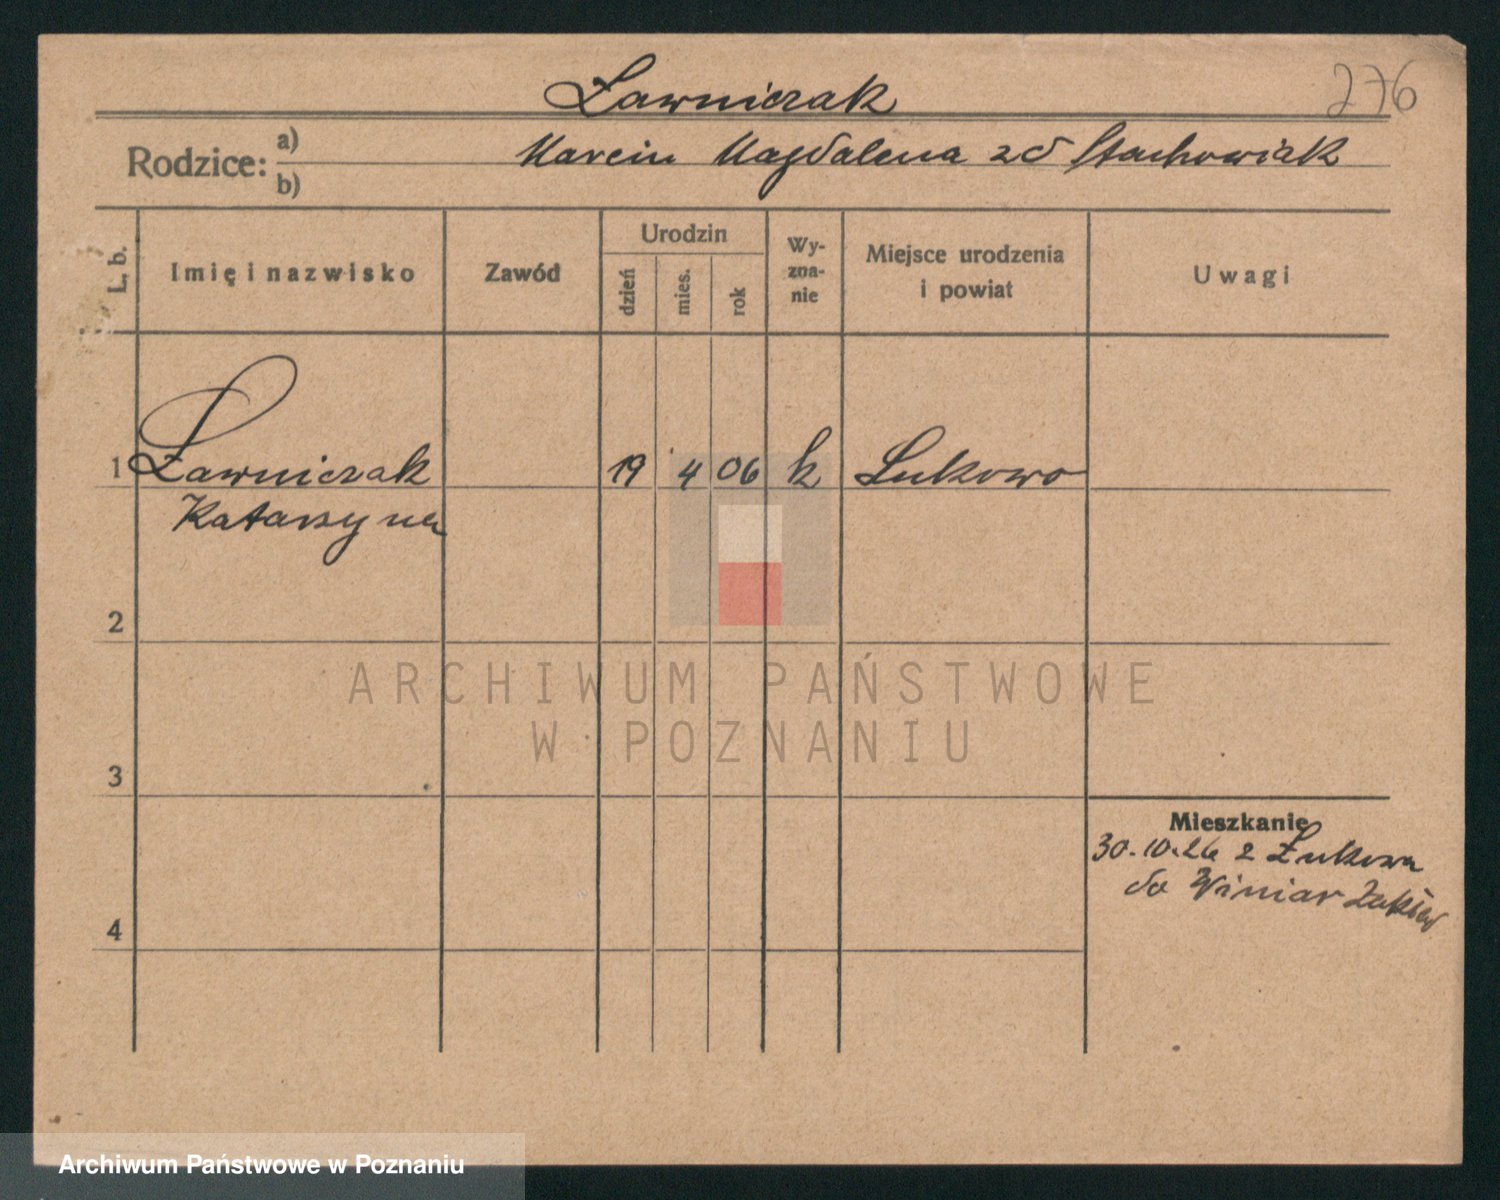 Ławniczak
276
Rodzice: a) b)
Marcin Magdalena zd Stachowiak
L. b.
Imię i nazwisko
Zawód
Urodzin
dzień
mies.
rok
Wy-
zna-
nie
Miejsce urodzenia
i powiat
Uwagi
1 Ławniczak 19 4 06 k Łukowo
Katarzyna
2
3
4
Mieszkanie
30.10.26 z Łukowa
do Winiar
ARCHIWUM PAŃSTWOWE
W POZNANIU
Archiwum Państwowe w Poznaniu